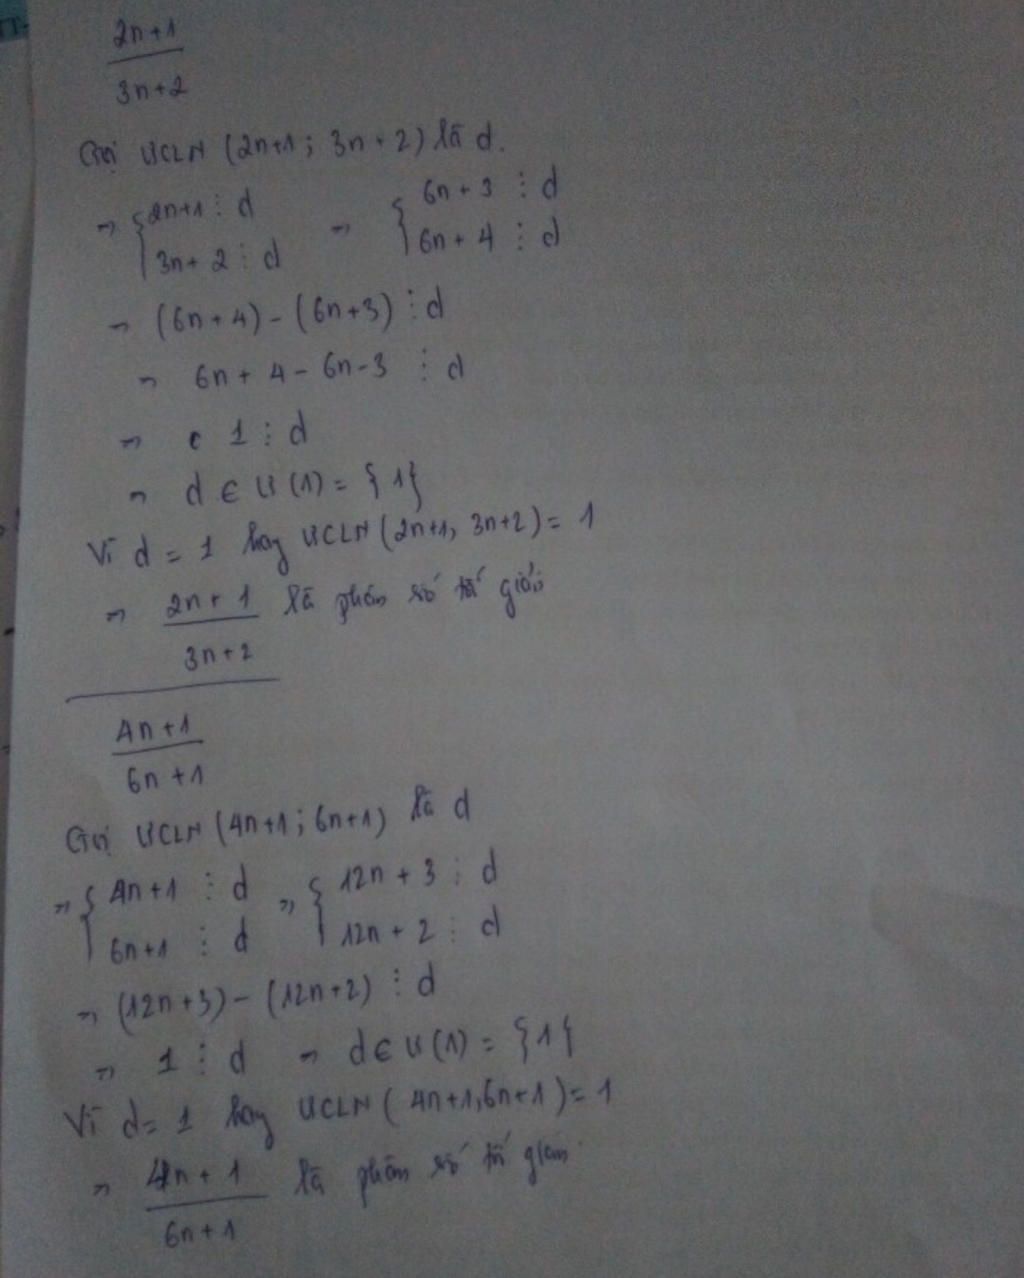 2n+1
3n+2
Gọi ƯCLN (2n+1; 3n+2) là d.
⇒ { 2n+1 ⋮ d ⇒ { 6n+3 ⋮ d
3n+2 ⋮ d 6n+4 ⋮ d
⇒ (6n+4) - (6n+3) ⋮ d
⇒ 6n+4-6n-3 ⋮ d
⇒ 1 ⋮ d
⇒ d ∈ Ư(1) = {1}
Vì d = 1 hay ƯCLN (2n+1, 3n+2) = 1
⇒ 2n+1 là phân số tối giản
3n+2
4n+1
6n+1
Gọi ƯCLN (4n+1; 6n+1) là d
⇒ { 4n+1 ⋮ d ⇒ { 12n+3 ⋮ d
6n+1 ⋮ d 12n+2 ⋮ d
⇒ (12n+3) - (12n+2) ⋮ d
⇒ 1 ⋮ d ⇒ d ∈ Ư(1) = {1}
Vì d = 1 hay ƯCLN (4n+1, 6n+1) = 1
⇒ 4n+1 là phân số tối giản
6n+1